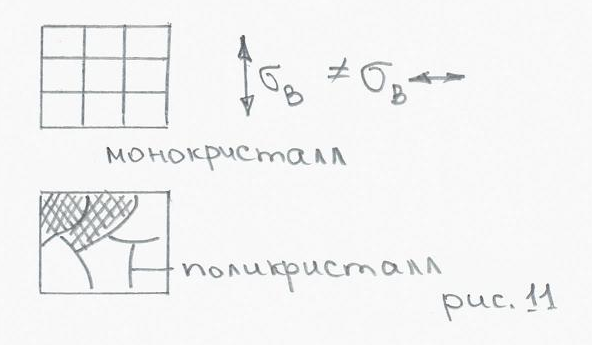 σв ≠ σв
монокристалл
поликристалл
рис. 11